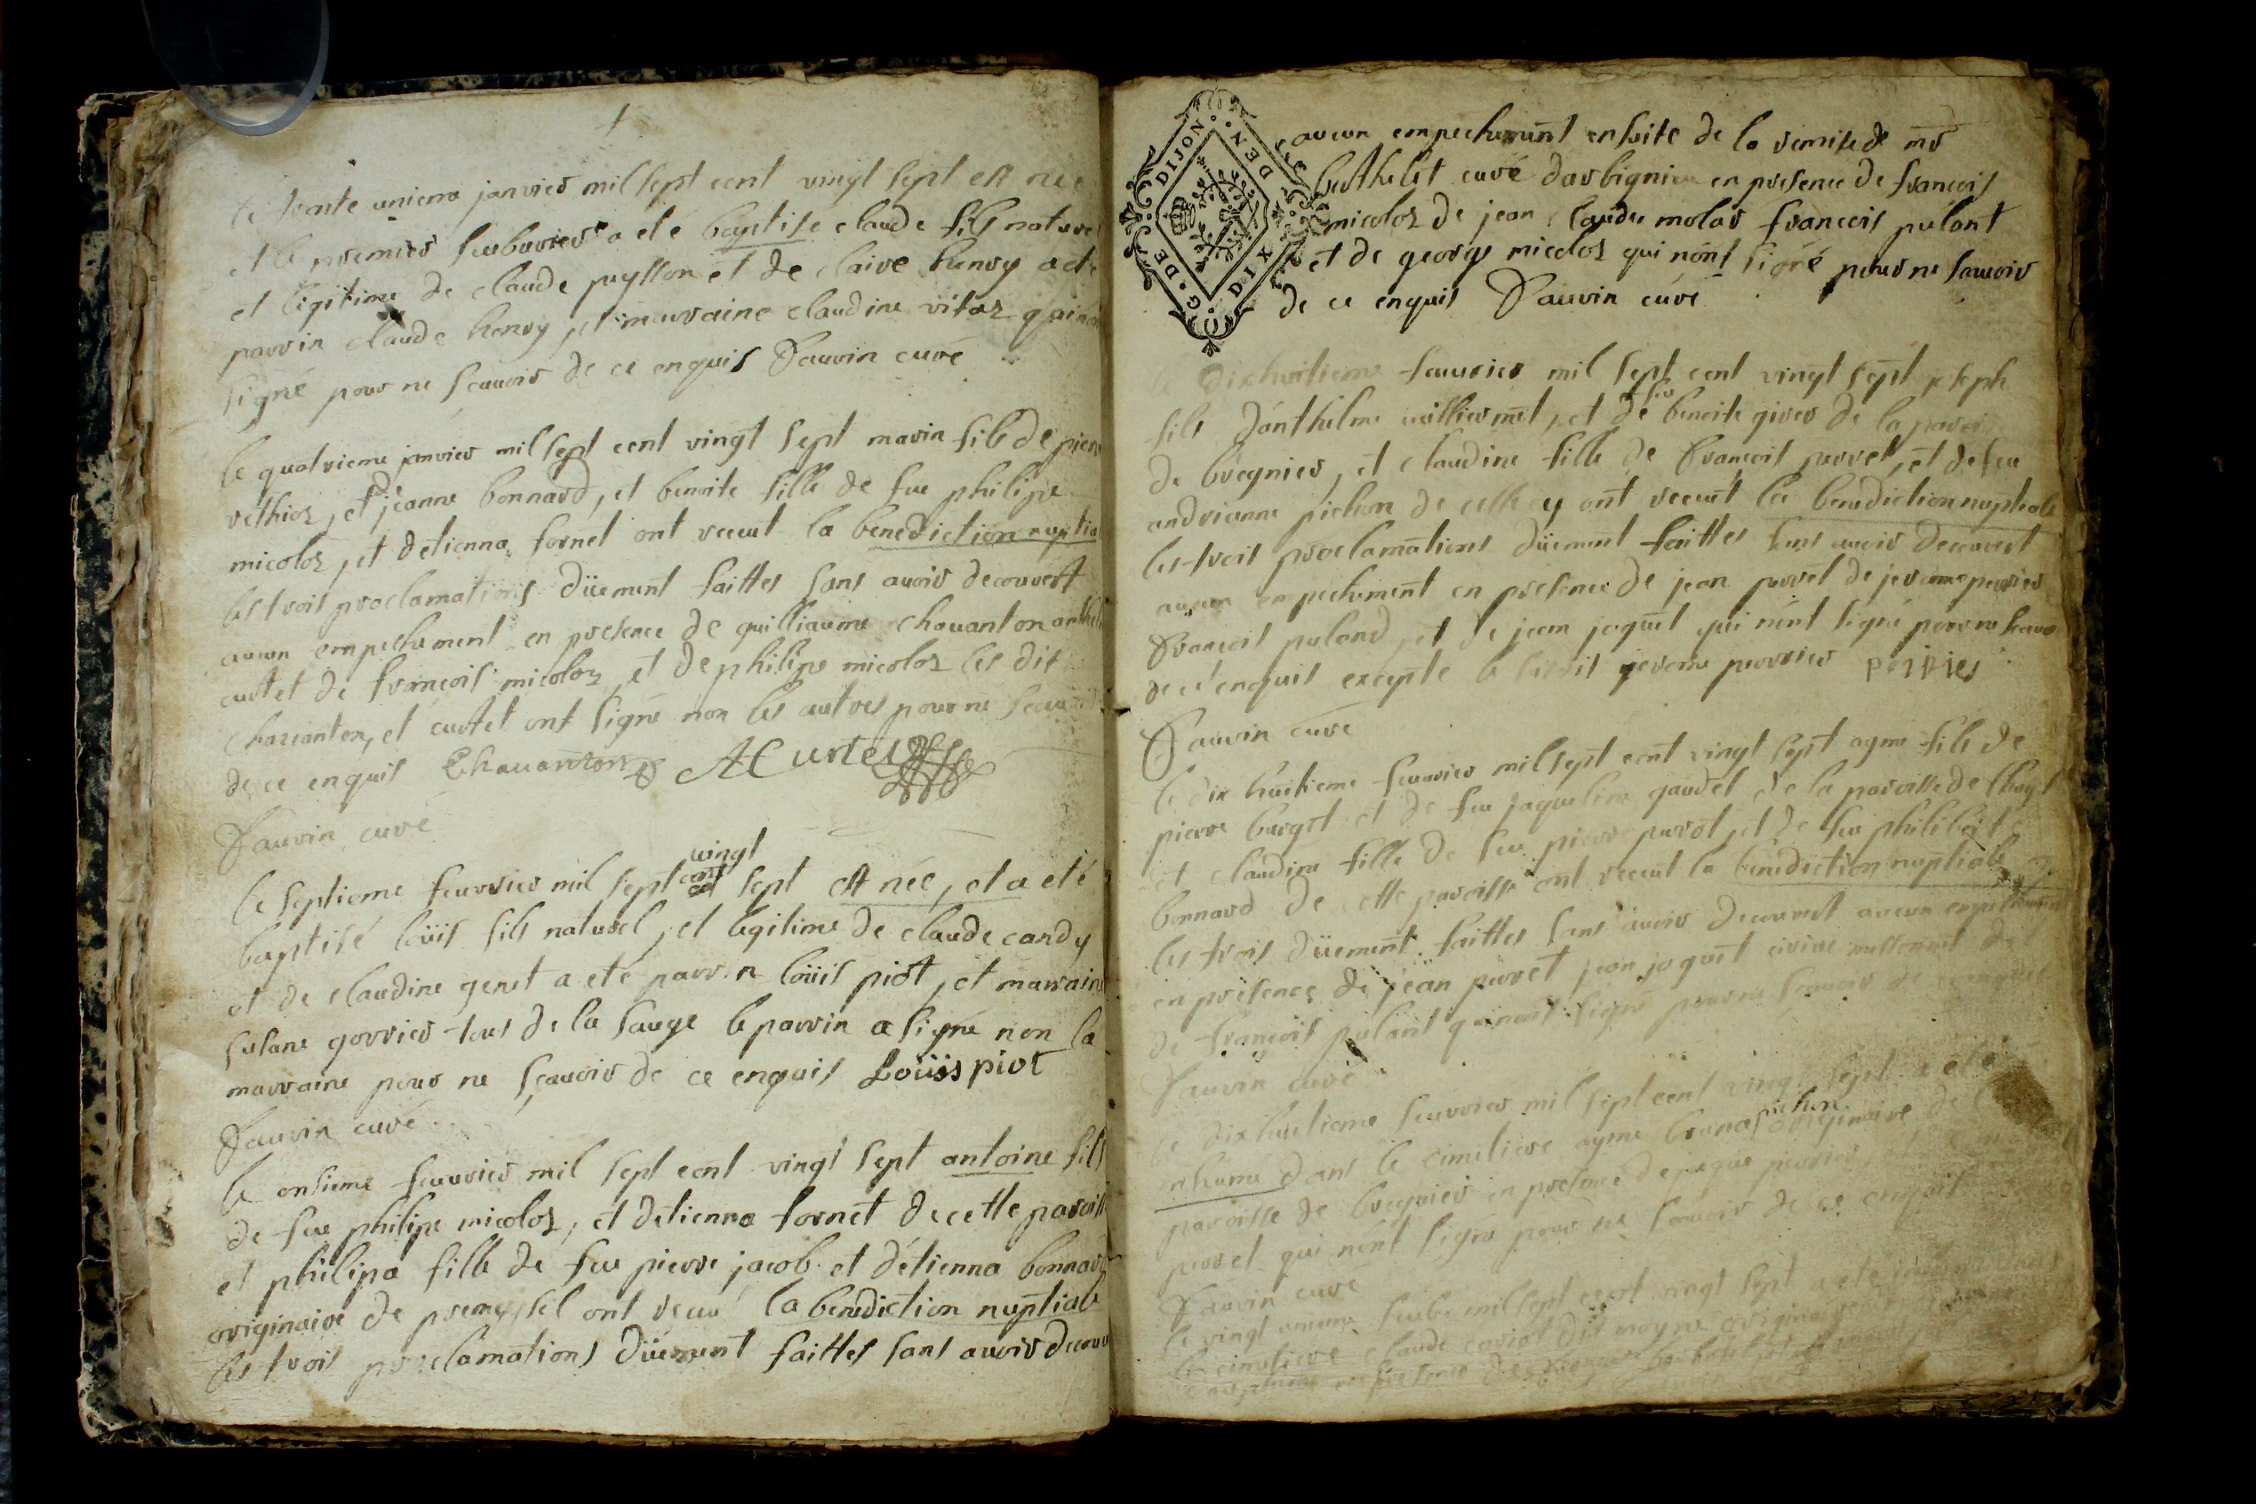 le trante unieme janvier mil sept cent vingt sept est née
et le premier feubvrier a eté baptise claude fils naturel
et legitime de claude puysson et de claire henry a eté
parrin claude henry, et marraine claudine vitoz qui
signé pour ne scavoir de ce enquis Fauvin curé
le quatrieme janvier mil sept cent vingt sept marin fils de pierre
rethioz, et jeanne bonnard, et benoite fille de feu philipe
micoloz, et detienna fornet ont receut la benediction nuptia
les trois proclamations düement faittes sans avoir decouvert
aucun empechement en presence de guilliaume chavanton
curtet de françois micoloz, et de philipe micoloz les dit
chavanton, et curtet ont signé non les autres pour ne
de ce enquis Chavanton A Curtet
Fauvin curé
le septieme feuvrier mil sept cent vingt sept est née, et a eté
baptisé loüis fils naturel, et legitime de claude cardy
et de claudine genet a eté parrin loüis piot, et marraine
susane gorrier tous de la sauge le parrin a signé non la
marraine pour ne sçavoir de ce enquis Loüis piot
Fauvin curé
le onsieme feuvrier mil sept cent vingt sept antoine fils
de feu philipe micoloz, et detienna fornet de cette paroisse
et philipa fille de feu pierre jacob et détienna bonnard
originaire de premeysel ont receu la benediction nuptiale
les trois proclamations düement faittes sans avoir decouv
G. DE DIJON
DIX DEN
aucun empechement ensuite de la remise de mr
berthelet curé darbignieu en presence de françois
micoloz de jean claude molar françois pulant
et de george micoloz qui nont signé pour ne scavoir
de ce enquis Fauvin curé
le dixhuitieme feuvrier mil sept cent vingt sept joseph
fils dánthelme et de feu benoite giver de la paroisse
de brégnier, et claudine fille de françois purret, et de feu
andrianne pichon de celle cy ont receut la benediction nuptiale
les trois proclamations düement faittes sans avoir decouvert
aucun empechement en presence de jean purret de jerome perrier
françois puland, et de jean jaquet qui nont signé pour ne scavoir
de ce enquis excepte le susdit jerome perrier
Fauvin curé
le dix huitieme feuvrier mil sept cent vingt sept ayme fils de
pierre burget et de feu jaqueline gaudet de la paroisse de
et claudine fille de feu pierre purret, et de feu philiberte
bonnard de cette paroisse ont receut la benediction nuptiale
les trois düement faittes sans avoir decouvert aucun empechement
en presence de jean purret jean jaquet
de françois pulant qui nont signé pour ne scavoir de ce
Fauvin curé
le dixhuitieme feuvrier mil sept cent vingt sept a eté
inhumé dans le cimitiere ayme pichon originaire de
paroisse de bregnier en presence de perrier
purret qui nont signé pour ne scavoir de ce enquis
Fauvin curé
le vingt unieme mil sept cent vingt sept a eté
le cimitiere claude dit originaire